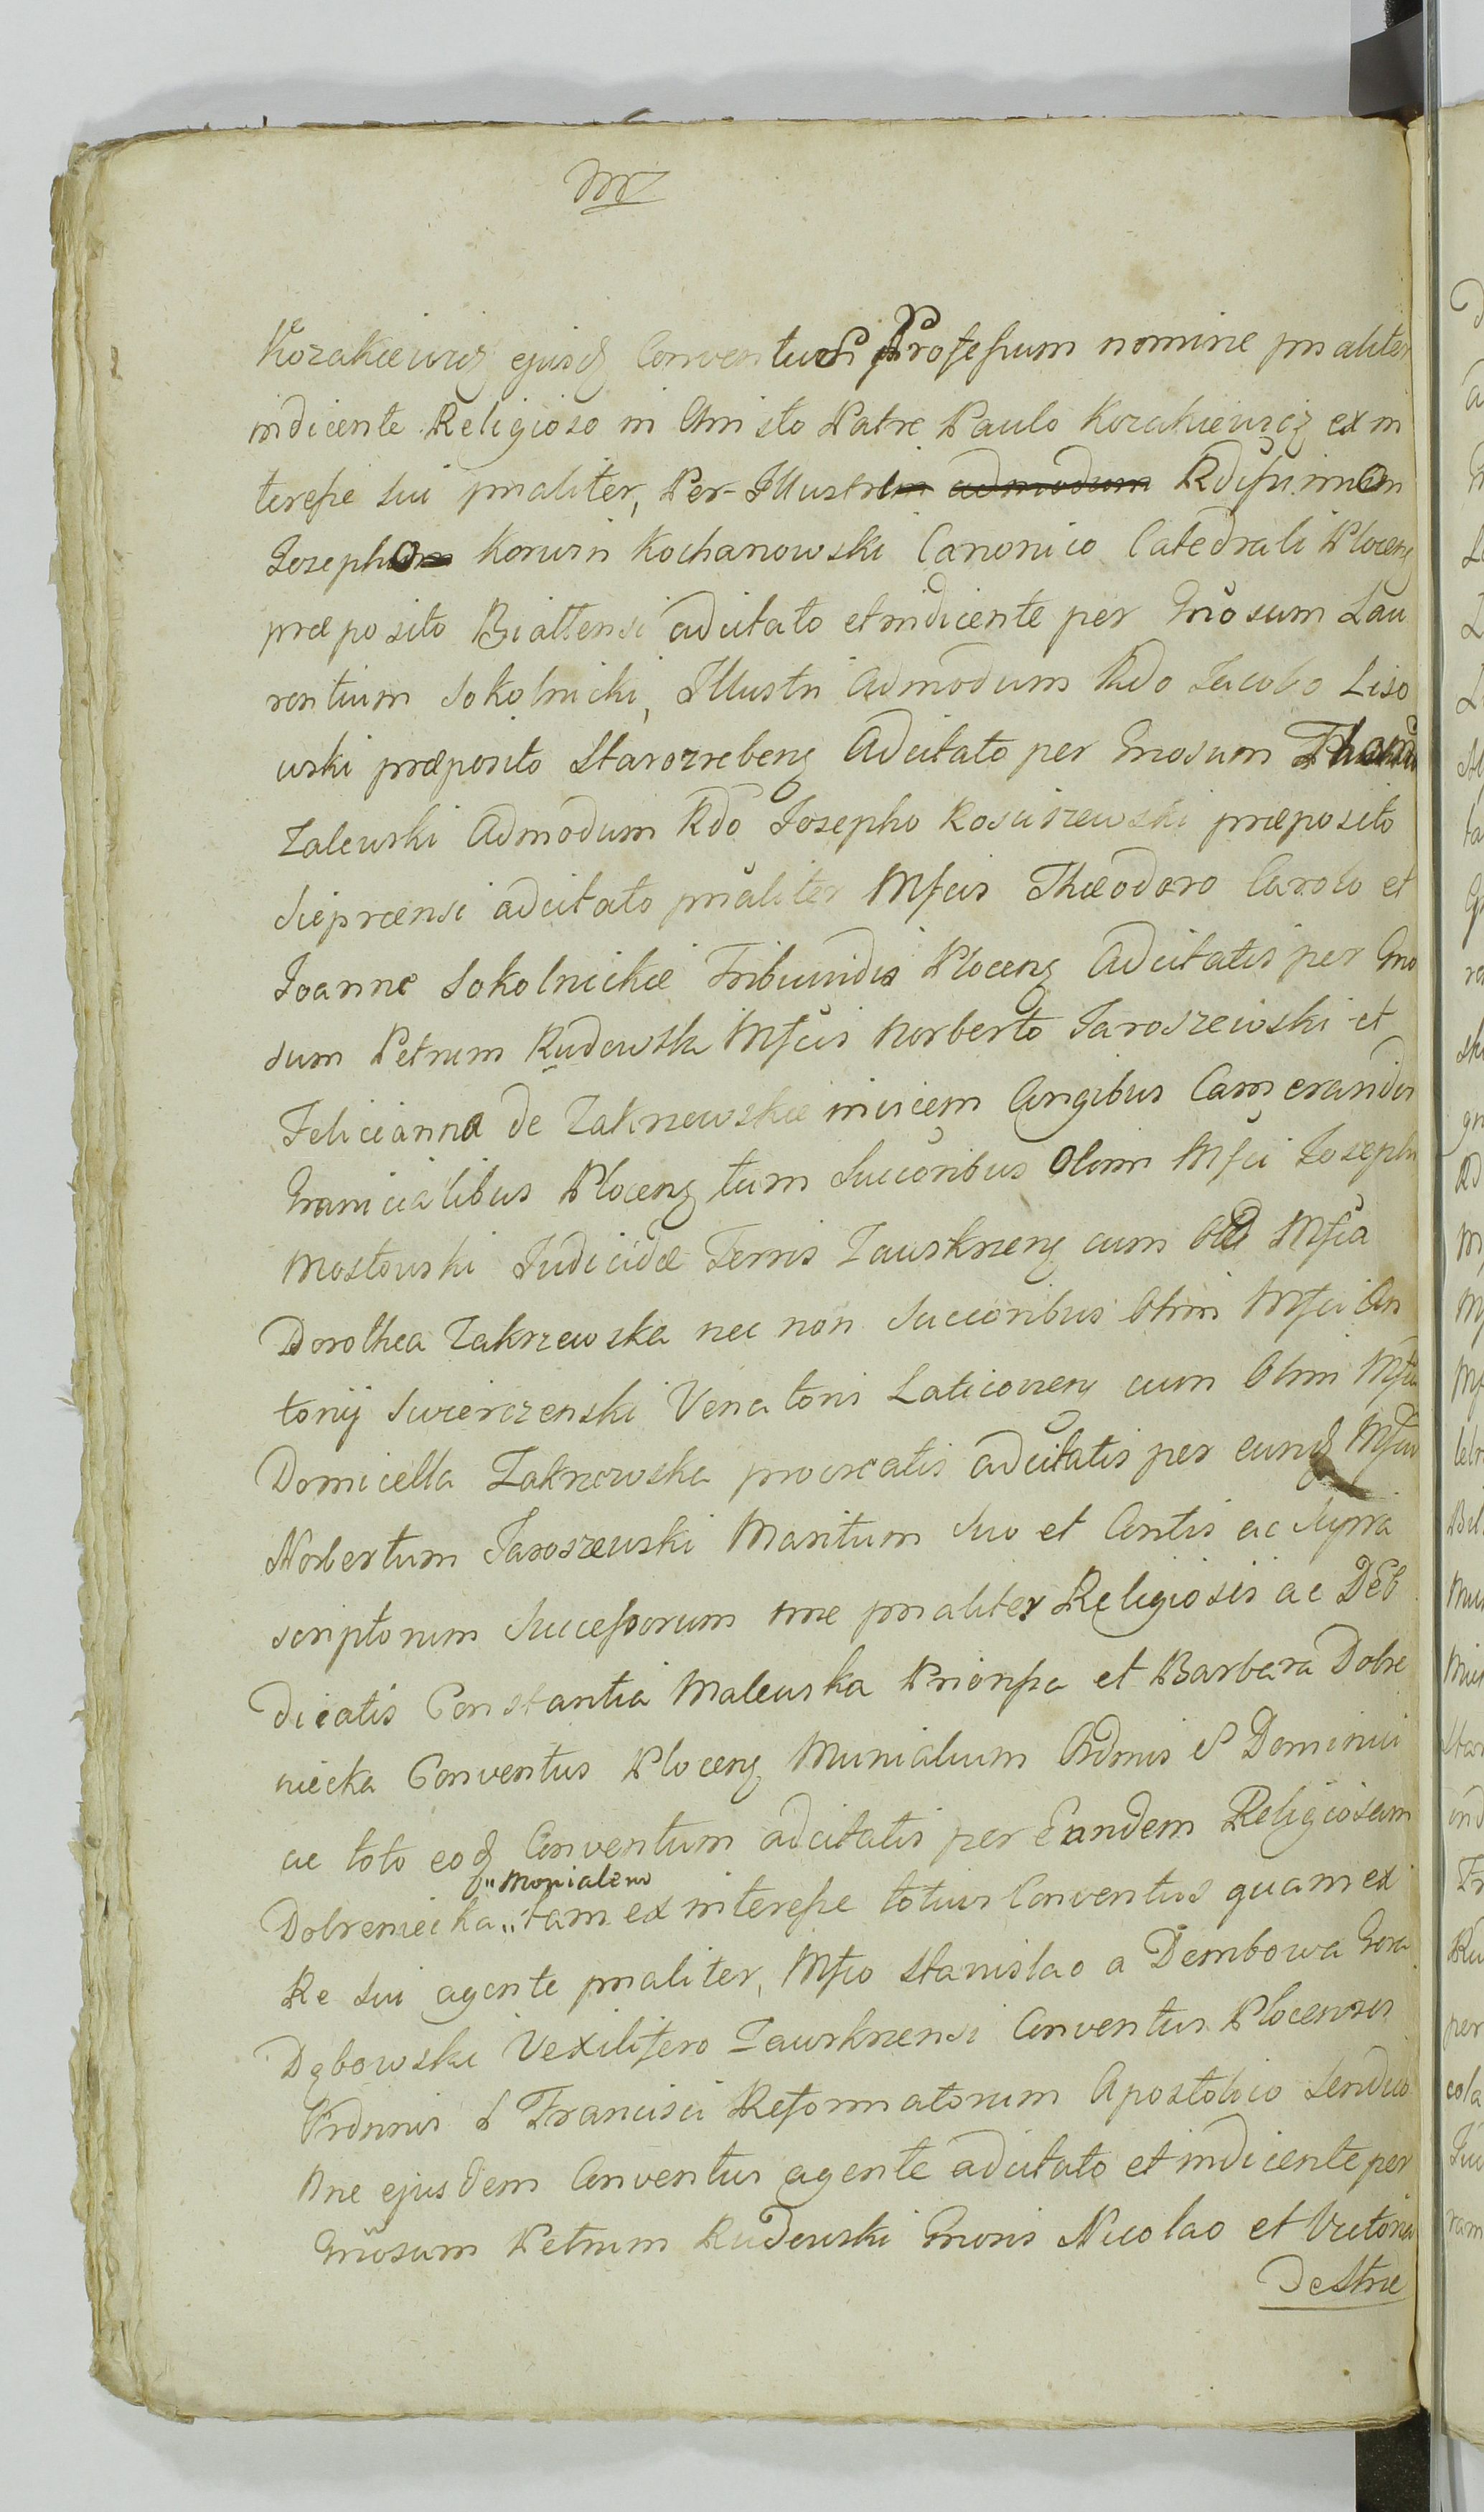 Kozakiewicz ejusq Conventus Professum nomine pnaliter
indicente Religioso in Christo Patre Paulo Kozakiewicz ex in
teresse sui pnaliter, Per-Illustri admodum Rdissimo
Josepho Korwin Kochanowski Canonico Catedrali Plocens
præposito Bialtensi adcitato et indicente per Gnosum Lau
rentium Sokolnicki, Illustri Admodum Rdo Jacobo Liso
wski præposito Starozrebens Adcitato per Gnosum
Zalewski Admodum Rdo Josepho Rosciszewski præposito
Sieprcensi adcitato pnaliter Mfcis Theodoro Carolo et
Joanne Sokolnickie Tribunidis Plocens Adcitatis per Gno
sum Petrum Rudowski Mfcis Norberto Jaroszewski et
Felicianna de Zakrzewskie invicem Conjgibus Camerandis
Granicialibus Plocens tum Succoribus Olim Mfci Josephi
Mostowski Judicidæ Terris Zawskrzens cum Mfca
Dorothea Zakrzewska nec non Succoribus Olim Mfci An
tonij Swierczenski Venatoris Laticoviens cum Olim Mfca
Domicella Zakrzewska procreatis adcitatis per eundq Mfcum
Norbertum Jaroszewski Maritum suo et Contis ac supra
scriptorum Successorum nne pnaliter Religiosis ac Deo
dicatis Constantia Malewska Priorissa et Barbara Dobre
niecka Conventus Plocens Munialium Ordinis S Dominici
ac toto eoq Conventum adcitatis per Eandem Religiosam
"monialem
Dobreniecka "tam ex interesse totius Conventus quam ex
Re sui agente pnaliter, Mfco Stanislao a Dembowa Gora
Dębowski Vexilifero Zawskrzensi Conventus Plocensis
Ordinis S Francisci Reformatorum Apostolico Sendico
Nne ejusdem Conventus agente adcitato et indicente per
Gnosum Petrum Rudowski Gnosis Nicolao et Victoria
De Strze